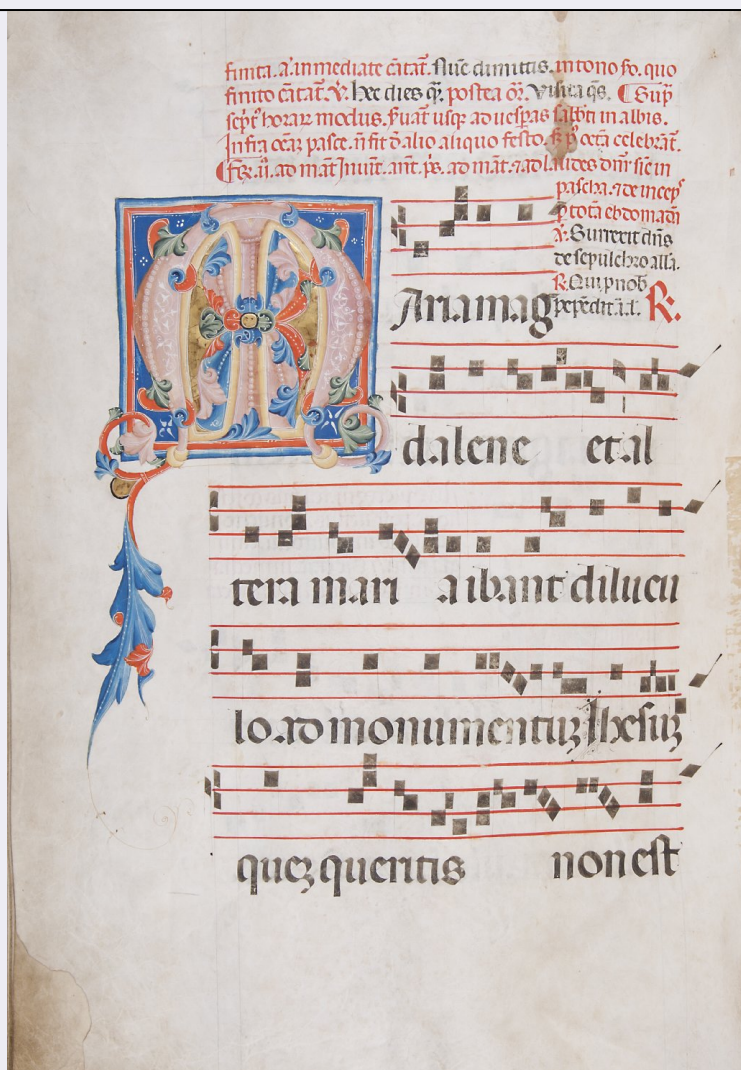 finita. a. inmediate cātat̄. Nūc dimittis. in tono fo. quo
finito cātat̄. ℣. hec dies q̄. postea oȓ. Visita q̄s. ¶ Sup̄
sept̄ horar̄ modus. s̄uat̄ usq; ad uesp̄as sabb̄ti in albis.
Infra octāz pasce. n̄ fit d̄ alio aliquo festo. s̄ p̄ octā celebrāt̄.
¶ Fer̄. ii. ad mat̄ Inuit̄. ant̄. p̄s. ad mat̄. ⁊ ad laudes dn̄r sic in
pascha. ⁊ de incep̄s
p̄ totā ebdomadā
℣. Surrexit dn̄s
de sepulchro alla.
℟. Qui p nob̄
pepēdit i. l. ℟.
MAria mag
dalene et al
tera mari a ibant dilucu
lo. ad monumentuʒ Ihesuʒ
queʒ queritis non est